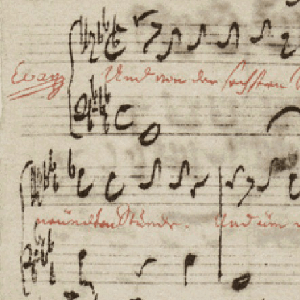 Evang
Und von der sechsten
neundten Stunde. Und um